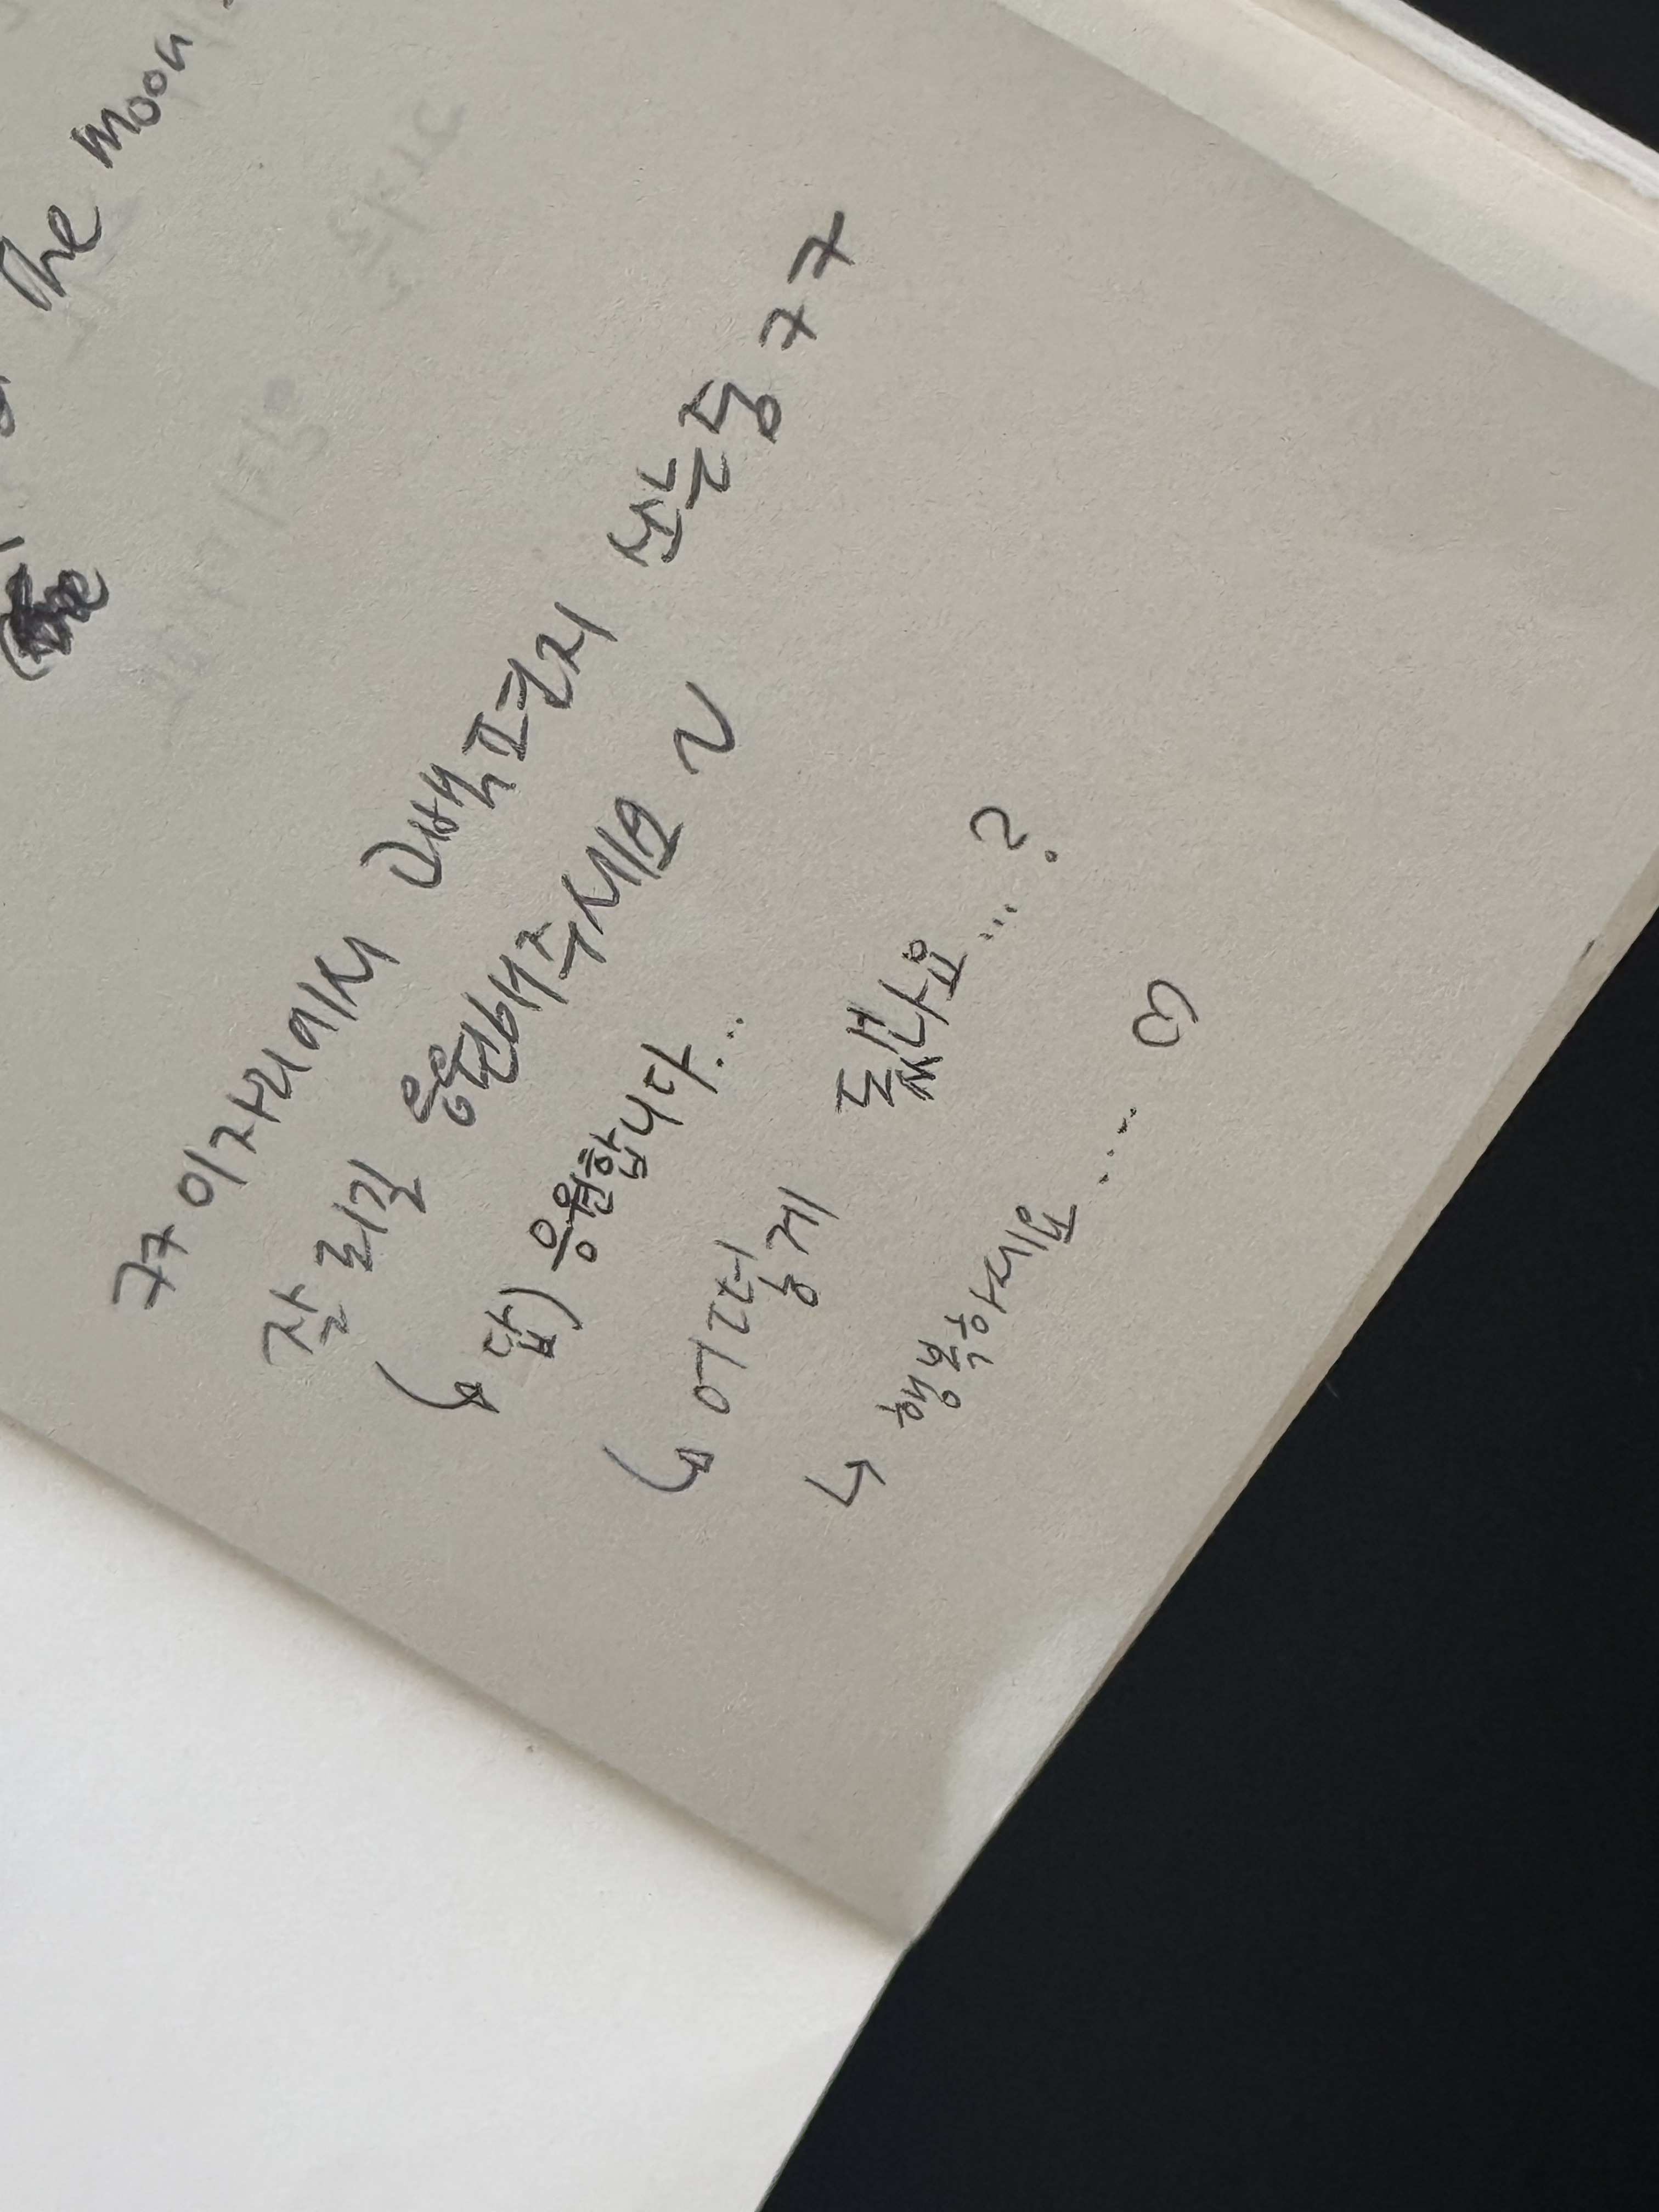 the moon
ㅋㅋ 이자리에서 쓰는중 ㅋㅋ
잘 되길 응원해주세요 ~
↳ 답) 응원합니다...
↳ 어떻게 됐나요...?
↳ 행복하세요.... ♡